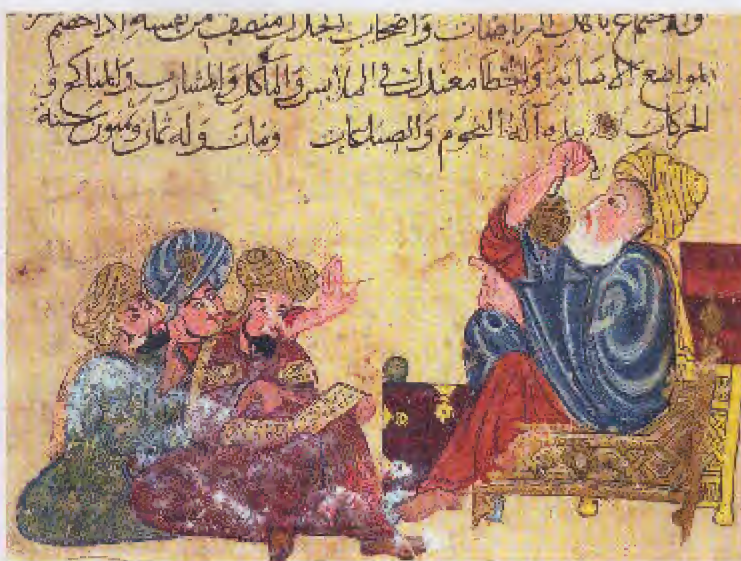 والاجتماع باهل الرياضات واصحاب الجدل منصف من نفسه اذا خصم
لمواضع الاصابة والخطا معتدل في الملابس والماكل والمشارب والمناكح و
الحركات بيده آلة النجوم والصناعات ومات وله ثمان وستون سنة